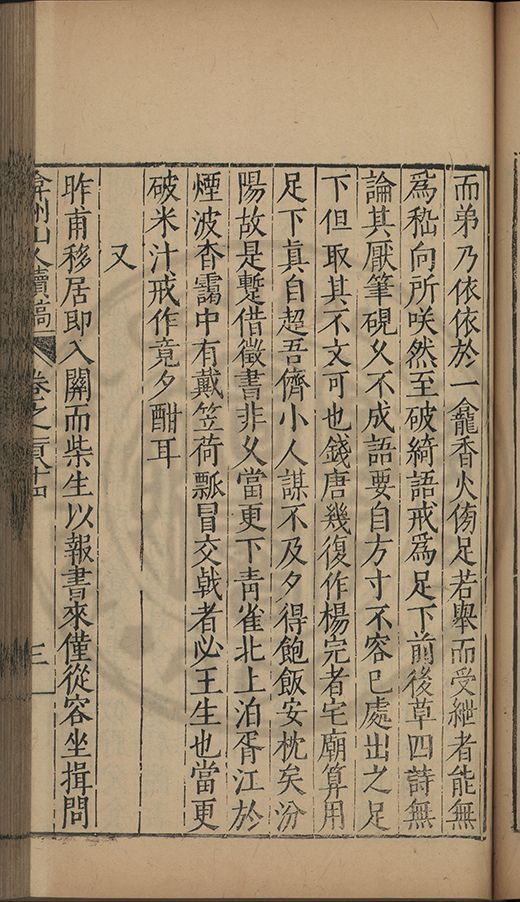 而弟乃依依於一龕香火傍足若舉而受紲者能無
爲嵇向所咲然至破綺語戒爲足下前後草四詩無
論其厭筆硯乆不成語要自方寸不容已處出之足
下但取其不文可也錢唐幾復作楊完者宅廟算用
足下真自超吾儕小人謀不及夕得飽飯安枕矣汾
陽故是蹔借徵書非乆當更下青雀北上泊胥江於
煙波杳靄中有戴笠荷瓢冒交戟者必王生也當更
破米汁戒作竟夕酣耳
又
昨甫移居即入關而柴生以報書來僅從容坐揖問
弇州山人續稿 卷之
三